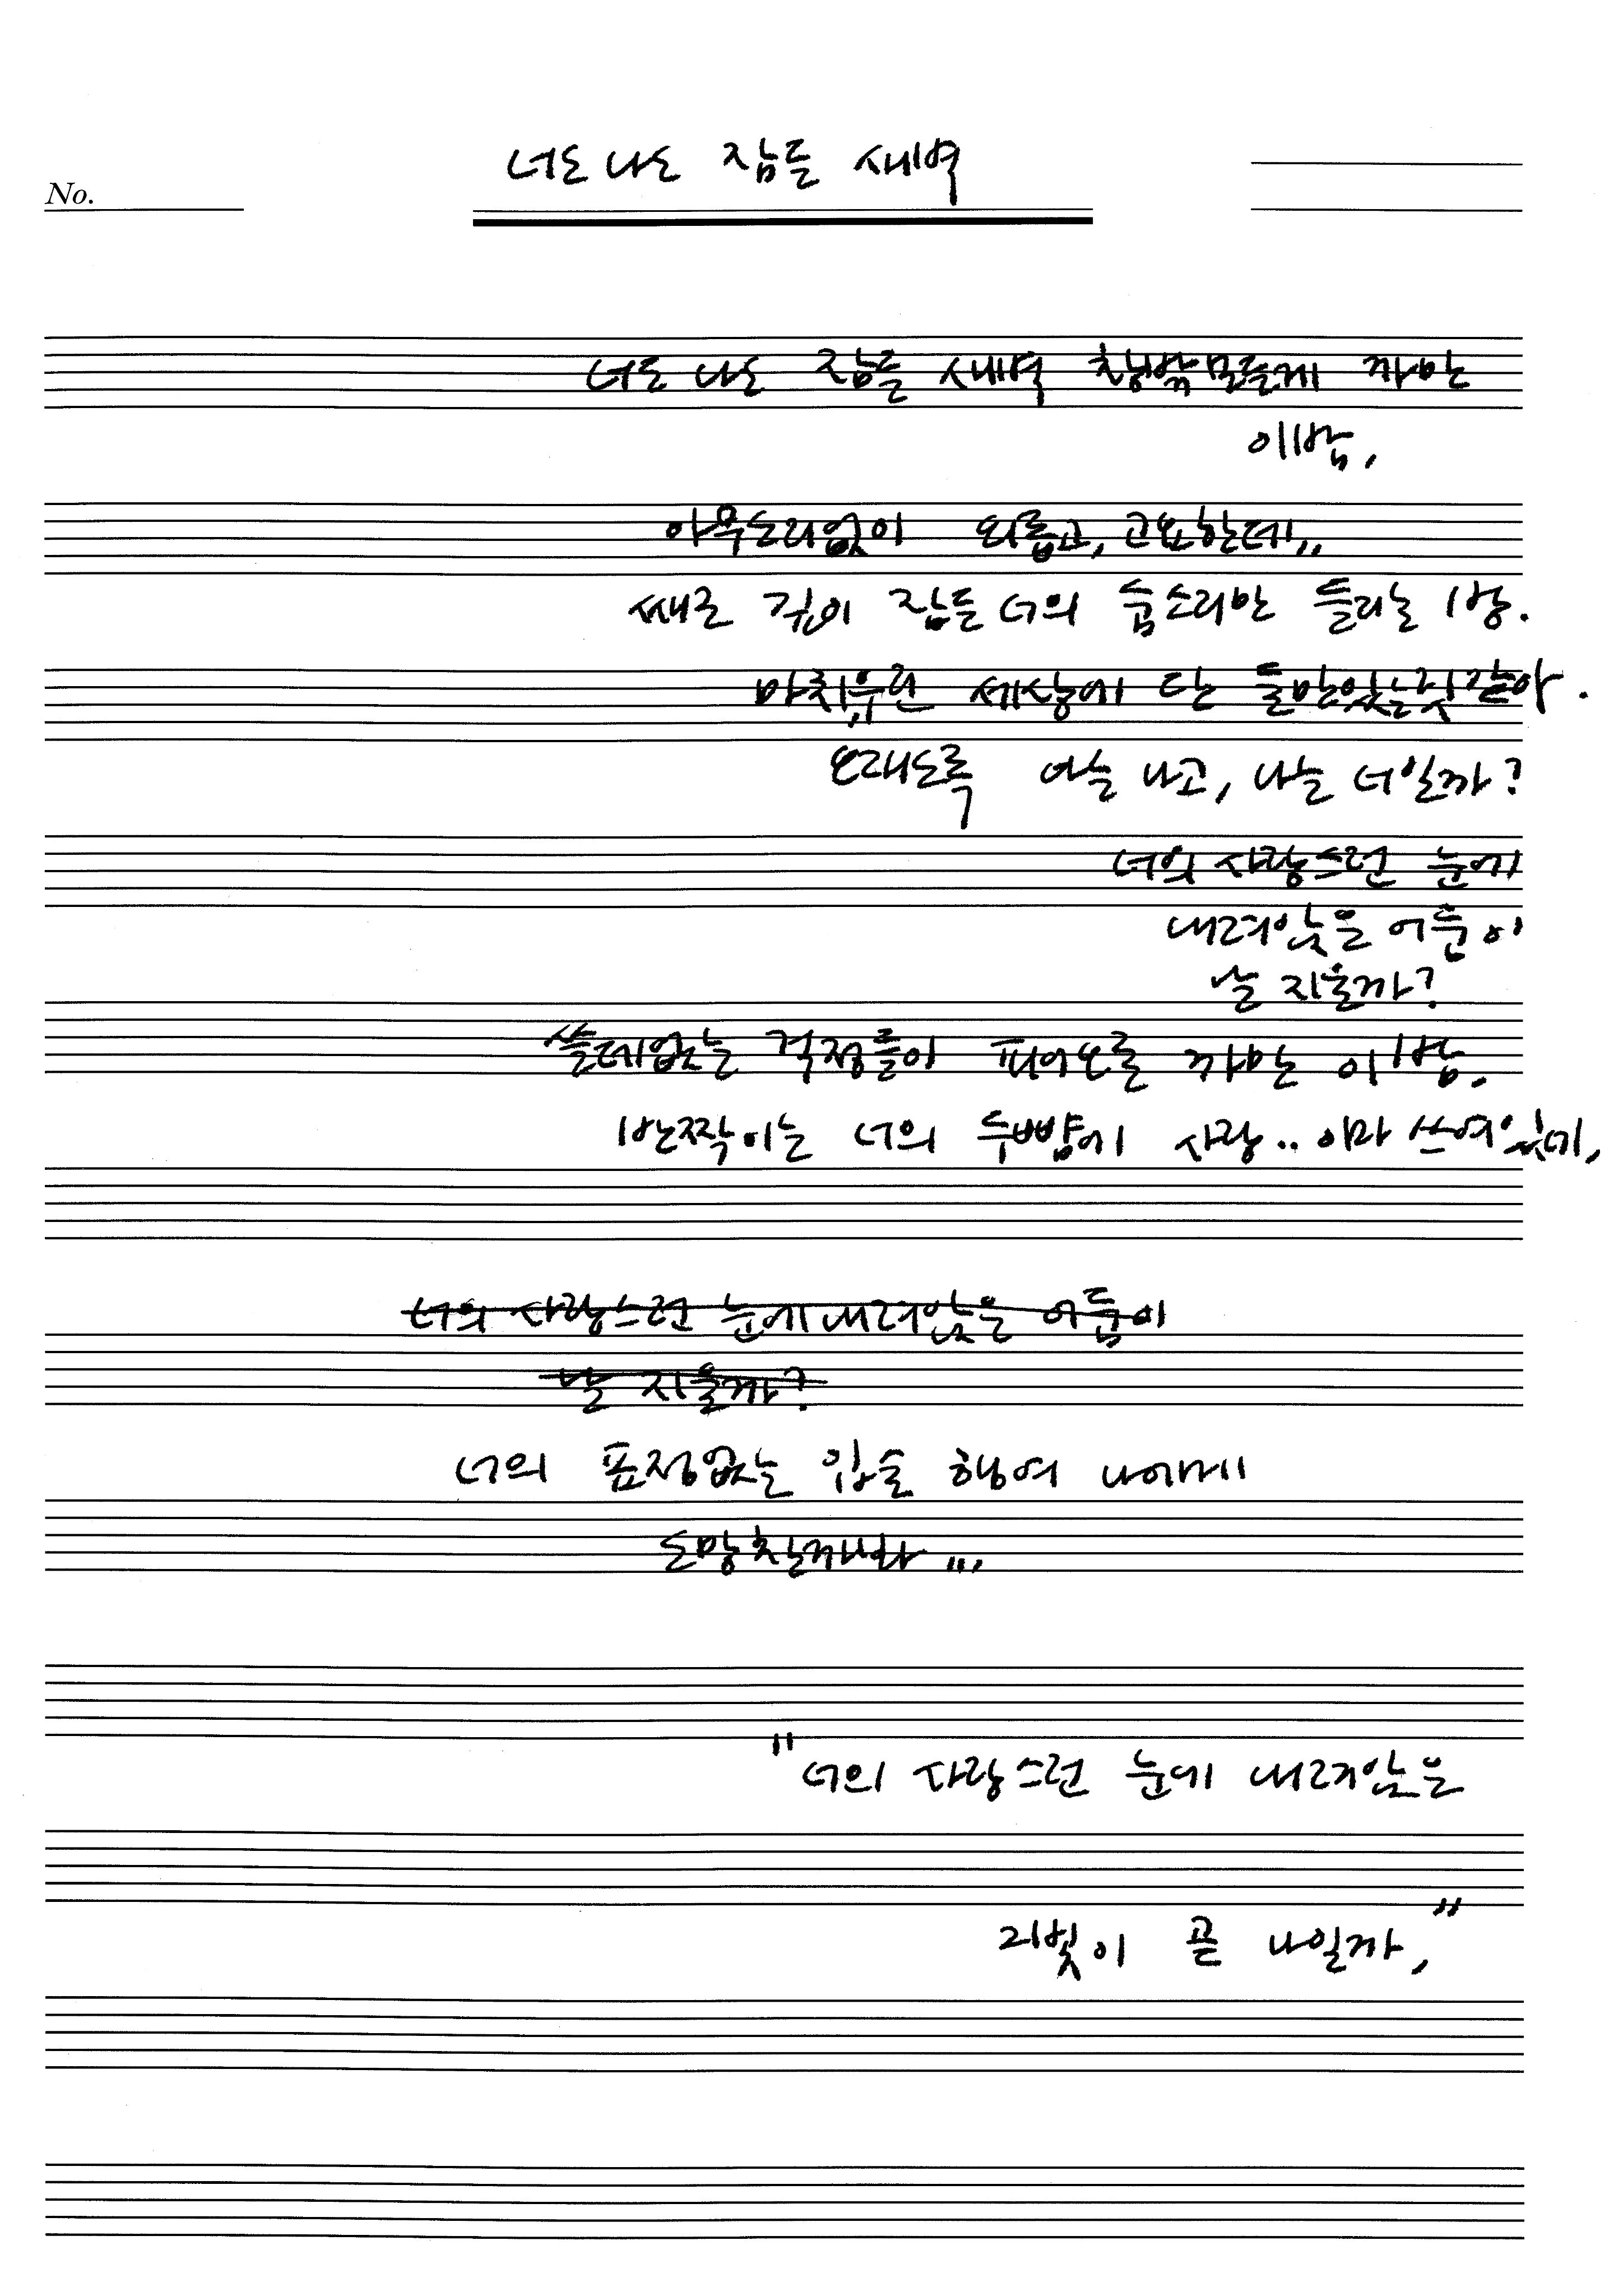 너도 나도 잠든 새벽
No.
너도 나도 잠든 새벽 까만
이 밤,
아무소리없이 외롭고, 고요한데,,
깊이 잠든 너의 숨소리만 들리는 밤.
마치 세상에 단 둘만있는것같아.
오래도록 너는 나고, 나는 너일까?
너의 사랑스런 눈에
내려앉은 어둠이
날 지울까?
쓸데없는 걱정들이 피어오를 까만 이 밤.
반짝이는 너의 두뺨에 사랑.. 이라 쓰여있네,
너의 사랑스런 눈에 내려앉은 어둠이
날 지울까?
너의 표정없는 입술 행여 나에게
도망친까봐 ,,,
"너의 사랑스런 눈에 내려앉은
곧 나일까,"